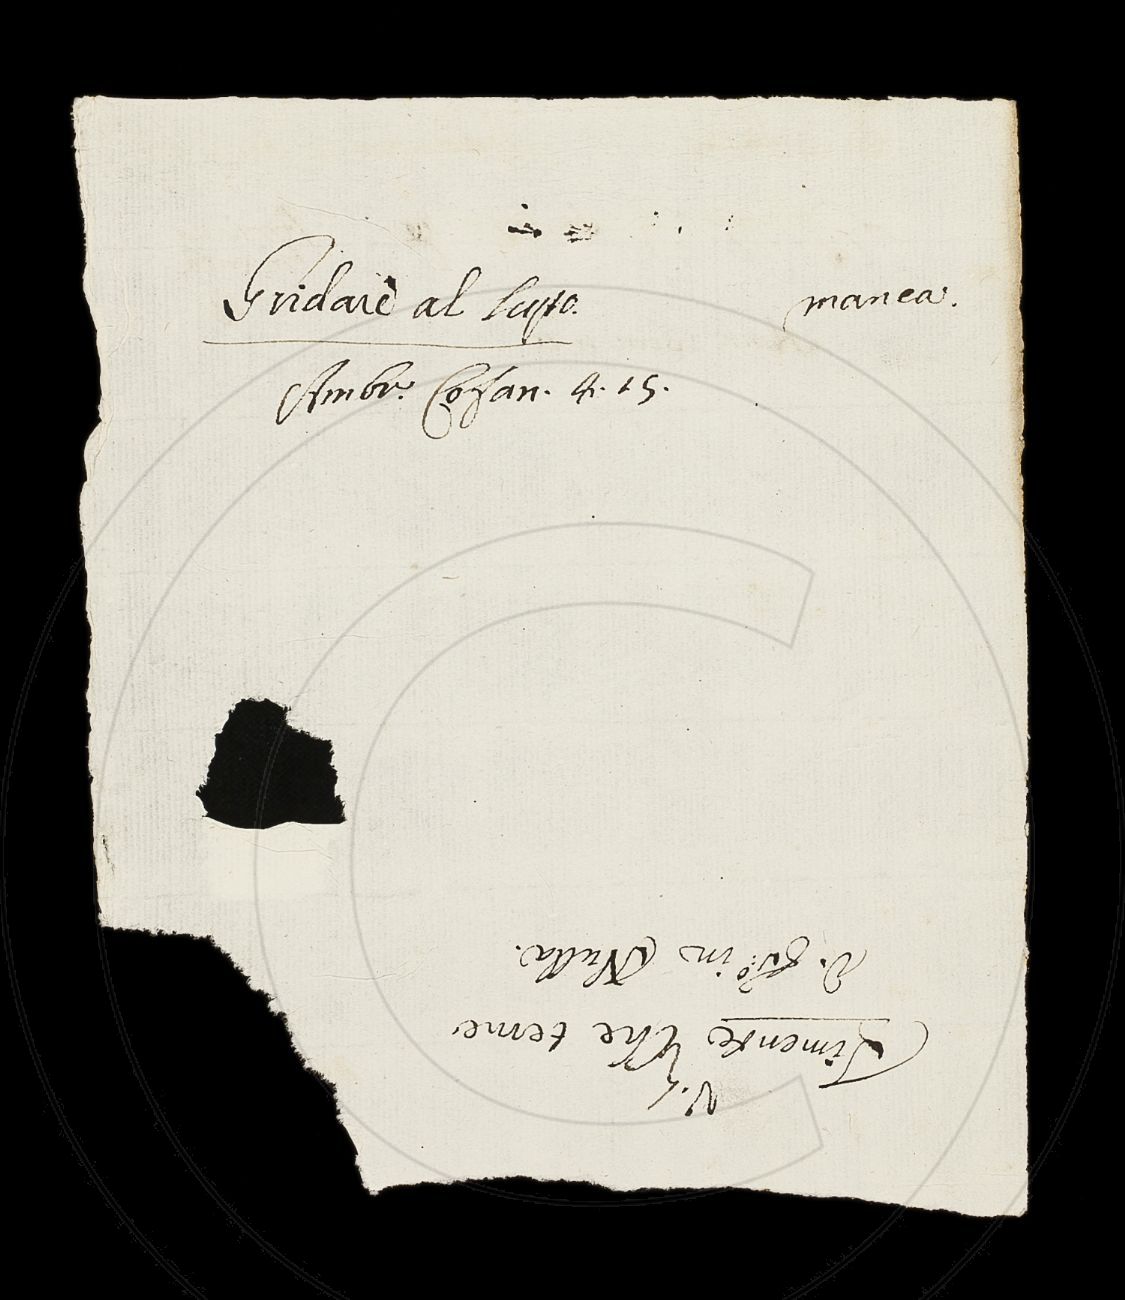 Gridare al Lupo. manca.
Ambr. Cofan. 4. 15.
V.
Timente Che teme
D. Gio. in Nulla.